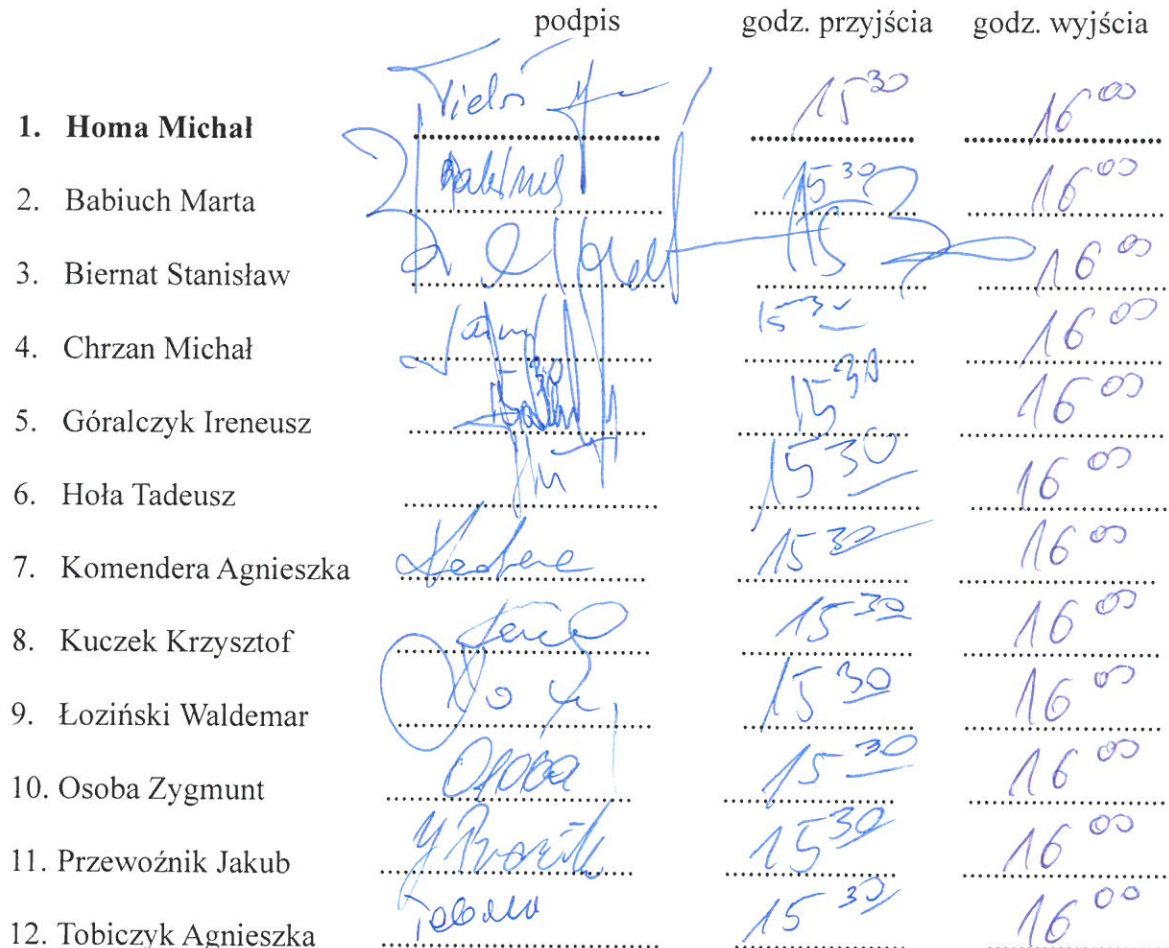 podpis godz. przyjścia godz. wyjścia
1. Homa Michał 15 30 16 00
2. Babiuch Marta 15 30 16 00
3. Biernat Stanisław 15 16 00
4. Chrzan Michał 15 30 16 00
5. Góralczyk Ireneusz 15 30 16 00
6. Hoła Tadeusz 15 30 16 00
7. Komendera Agnieszka 15 30 16 00
8. Kuczek Krzysztof 15 30 16 00
9. Łoziński Waldemar 15 30 16 00
10. Osoba Zygmunt Osoba 15 30 16 00
11. Przewoźnik Jakub 15 30 16 00
12. Tobiczyk Agnieszka 15 30 16 00